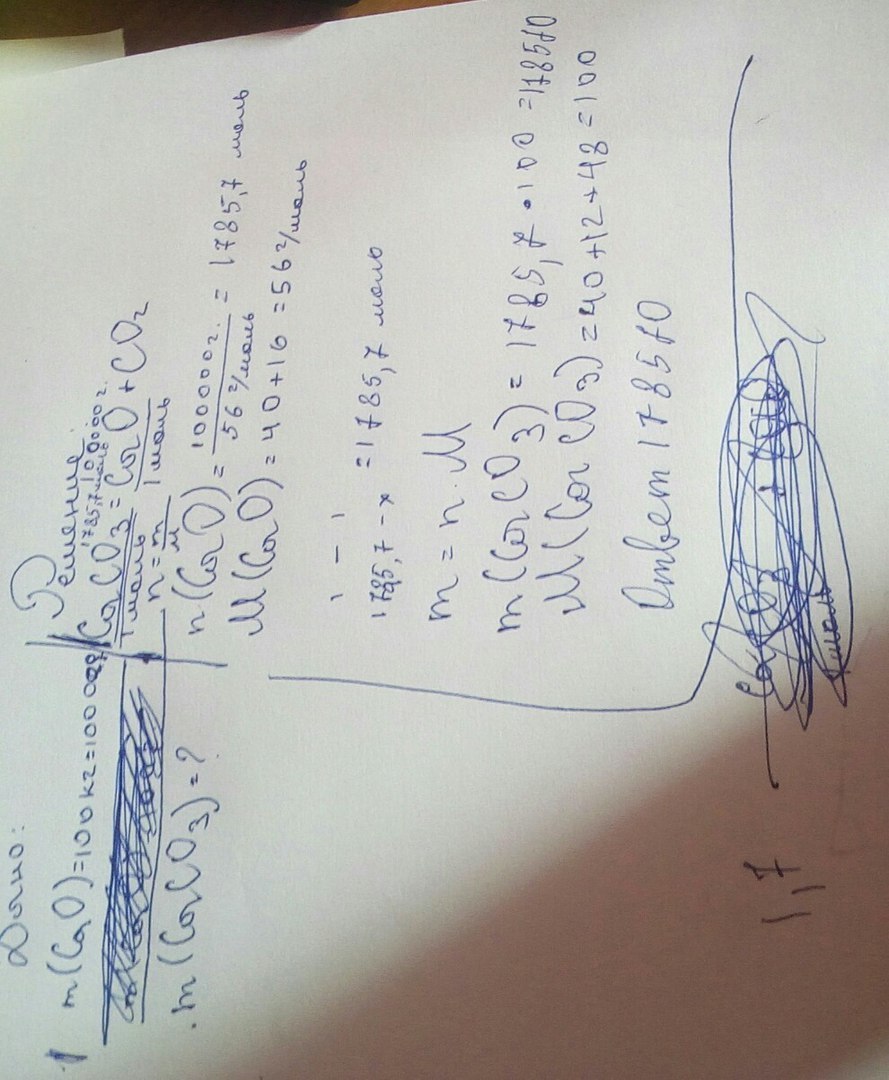 Дано:
m(CaO)=100кг=100000г
m(CaCO3)=?
Решение:
1785,7моль 100000г.
CaCO3=CaO+CO2
1моль 1моль
n=m/M
n(CaO)=100000г./56г/моль=1785,7 моль
M(CaO)=40+16=56г/моль
1 – 1
1785,7 – x =1785,7 моль
m=n·M
m(CaCO3)=1785,7·100=178570
M(CaCO3)=40+12+48=100
Ответ 178570
1,7